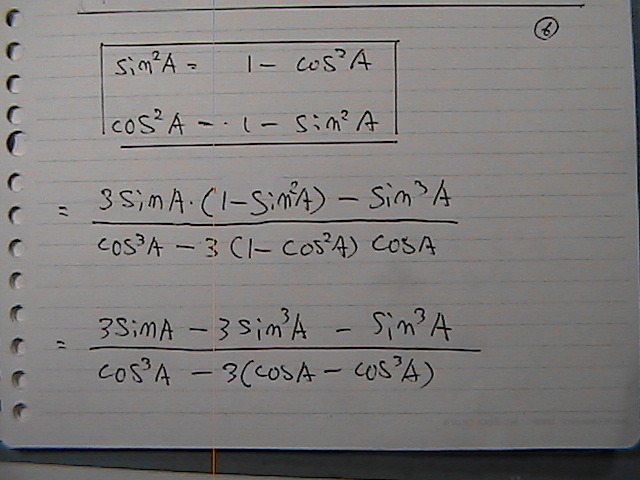 6
sin²A = 1 - cos²A
cos²A = 1 - sin²A
= 3 sinA . (1 - sin²A) - sin³A
cos³A - 3 (1 - cos²A) cosA
= 3 sinA - 3 sin³A - sin³A
cos³A - 3(cosA - cos³A)